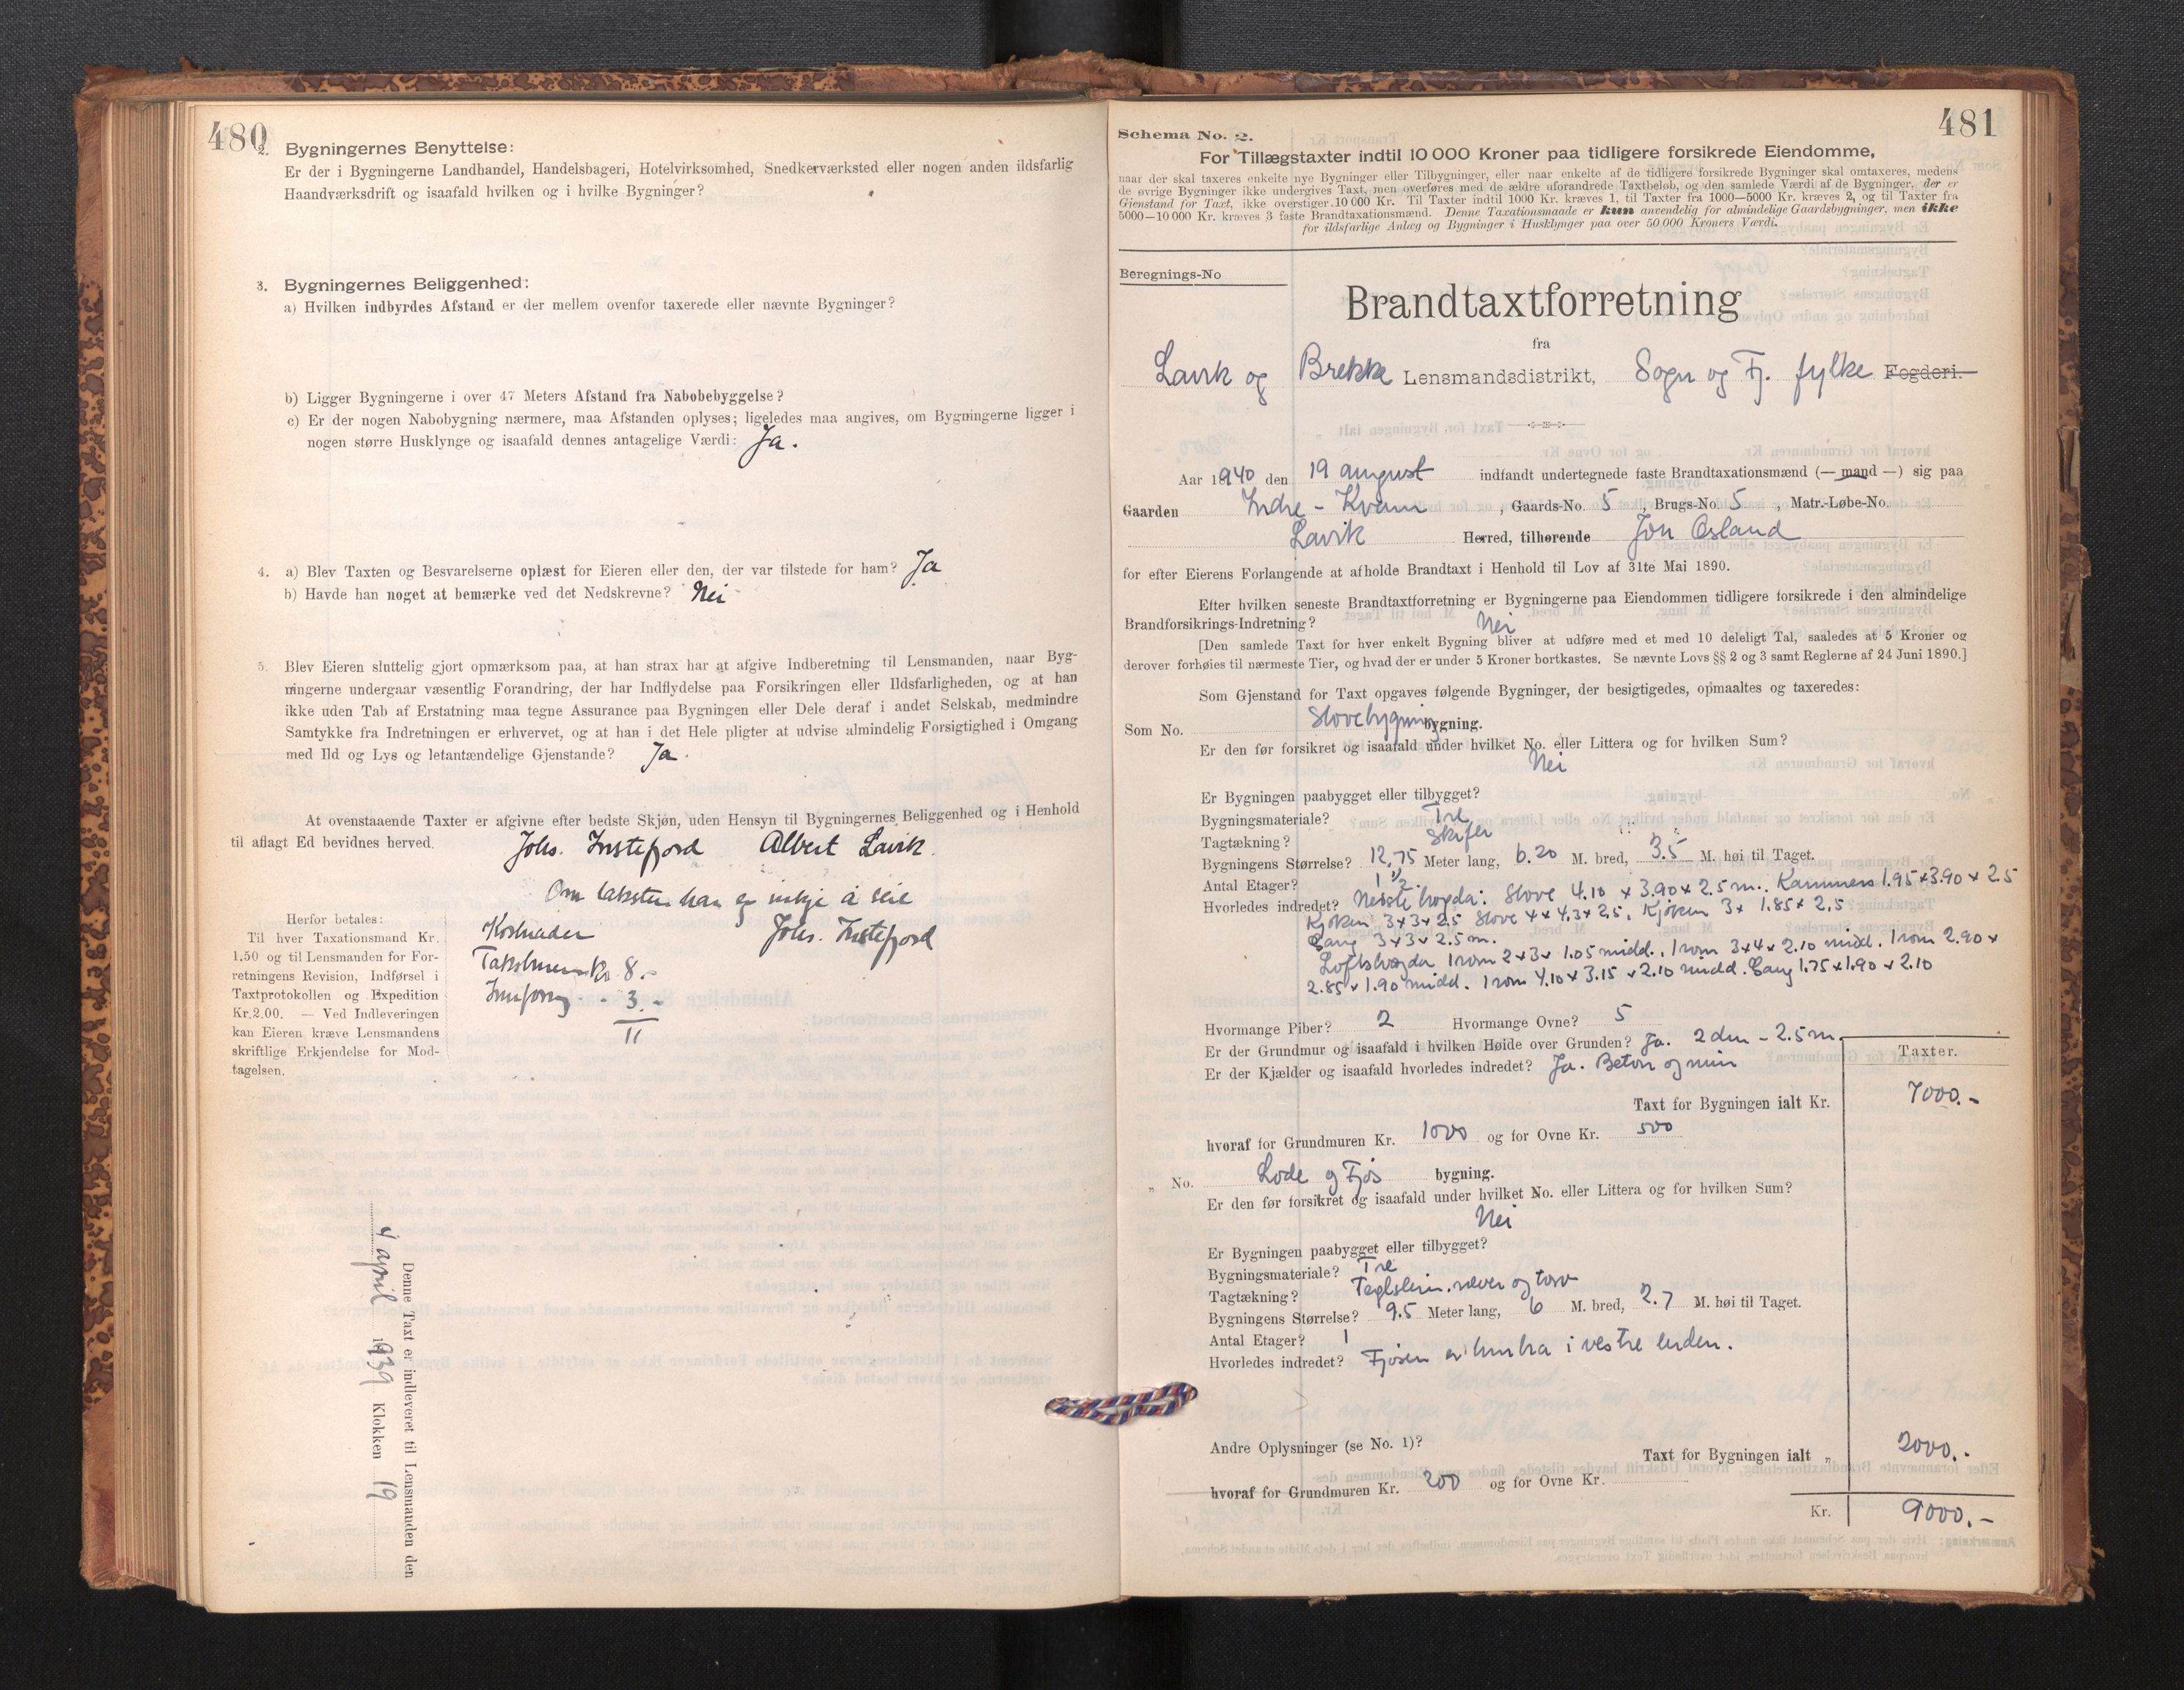 480
2. Bygningernes Benyttelse:
Er der i Bygningerne Landhandel, Handelsbageri, Hotelvirksomhed, Snedkerværksted eller nogen anden ildsfarlig
Haandværksdrift og isaafald hvilken og i hvilke Bygninger?
3. Bygningernes Beliggenhed:
a) Hvilken indbyrdes Afstand er der mellem ovenfor taxerede eller nævnte Bygninger?
b) Ligger Bygningerne i over 47 Meters Afstand fra Nabobebyggelse?
c) Er der nogen Nabobygning nærmere, maa Afstanden oplyses; ligeledes maa angives, om Bygningerne ligger i
nogen større Husklynge og isaafald dennes antagelige Værdi: Ja.
4. a) Blev Taxten og Besvarelserne oplæst for Eieren eller den, der var tilstede for ham? Ja
b) Havde han noget at bemærke ved det Nedskrevne? Nei
5. Blev Eieren sluttelig gjort opmærksom paa, at han strax har at afgive Indberetning til Lensmanden, naar Byg-
ningerne undergaar væsentlig Forandring, der har Indflydelse paa Forsikringen eller Ildsfarligheden, og at han
ikke uden Tab af Erstatning maa tegne Assurance paa Bygningen eller Dele deraf i andet Selskab, medmindre
Samtykke fra Indretningen er erhvervet, og at han i det Hele pligter at udvise almindelig Forsigtighed i Omgang
med Ild og Lys og letantændelige Gjenstande? Ja.
At ovenstaaende Taxter er afgivne efter bedste Skjøn, uden Hensyn til Bygningernes Beliggenhed og i Henhold
til aflagt Ed bevidnes herved. Johs. Instefjord Albert Lavik.
Om taksten har eg inkje å seie
Johs. Instefjord
Herfor betales:
Til hver Taxationsmand Kr.
1.50 og til Lensmanden for For-
retningens Revision, Indførsel i
Taxtprotokollen og Expedition
Kr.2.00. — Ved Indleveringen
kan Eieren kræve Lensmandens
skriftlige Erkjendelse for Mod-
tagelsen.
Kostnader
Kr 8.-
- 3.-
11
Denne Taxt er indleveret til Lensmanden den
4 april 1939 Klokken 19
481
Schema No. 2.
For Tillægstaxter indtil 10 000 Kroner paa tidligere forsikrede Eiendomme,
naar der skal taxeres enkelte nye Bygninger eller Tilbygninger, eller naar enkelte af de tidligere forsikrede Bygninger skal omtaxeres, medens
de øvrige Bygninger ikke undergives Taxt, men overføres med de ældre uforandrede Taxtbeløb, og den samlede Værdi af de Bygninger, der er
Gienstand for Taxt, ikke overstiger 10 000 Kr. Til Taxter indtil 1000 Kr. kræves 1, til Taxter fra 1000—5000 Kr. kræves 2, og til Taxter fra
5000—10 000 Kr. kræves 3 faste Brandtaxationsmænd. Denne Taxationsmaade er kun anvendelig for almindelige Gaardsbygninger, men ikke
for ildsfarlige Anlæg og Bygninger i Husklynger paa over 50 000 Kroners Værdi.
Beregnings-No
Brandtaxtforretning
fra
Lavik og Brekke Lensmandsdistrikt, Sogn og Fj. fylke Fogderi.
Aar 1940 den 19 august indfandt undertegnede faste Brandtaxationsmænd (— mand —) sig paa
Gaarden Indre - Kvam, Gaards-No. 5, Brugs-No. 5, Matr.-Løbe-No.
Lavik Herred, tilhørende Jon Osland
for efter Eierens Forlangende at afholde Brandtaxt i Henhold til Lov af 31te Mai 1890.
Efter hvilken seneste Brandtaxtforretning er Bygningerne paa Eiendommen tidligere forsikrede i den almindelige
Brandforsikrings-Indretning? Nei
[Den samlede Taxt for hver enkelt Bygning bliver at udføre med et med 10 deleligt Tal, saaledes at 5 Kroner og
derover forhøies til nærmeste Tier, og hvad der er under 5 Kroner bortkastes. Se nævnte Lovs §§ 2 og 3 samt Reglerne af 24 Juni 1890.]
Som Gjenstand for Taxt opgaves følgende Bygninger, der besigtigedes, opmaaltes og taxeredes:
Som No. Stovebygning bygning.
Er den før forsikret og isaafald under hvilket No. eller Littera og for hvilken Sum?
Nei
Er Bygningen paabygget eller tilbygget?
Bygningsmateriale? Tre
Tagtækning? Skifer
Bygningens Størrelse? 12,75 Meter lang, 6.20 M. bred, 3.5 M. høi til Taget.
Antal Etager? 1 1/2.
Hvorledes indredet? Nedste høgda: Stove 4.10 x 3.90 x 2.5 m.. Kammers 1.95 x 3.90 x 2.5
Kjøken 3 x 3 x 2.5 Stove 4 x 4.3 x 2.5. Kjøken 3 x 1.85 x 2.5
Gang 3 x 3 x 2.5 m.
Loftshøgda 1 rom 2 x 3 x 1.05 midd.. 1 rom 3 x 4 x 2.10 midd. 1 rom 2.90 x
2.85 x 1.90 midd. 1 rom 4.10 x 3.15 x 2.10 midd. Gang 1.75 x 1.90 x 2.10
Hvormange Piber? 2 Hvormange Ovne? 5
Er der Grundmur og isaafald i hvilken Høide over Grunden? Ja. 2 dm - 2.5 m.
Er der Kjælder og isaafald hvorledes indredet? Ja. Beton og mur
Taxter.
Taxt for Bygningen ialt Kr. 7000.-
hvoraf for Grundmuren Kr. 1000 og for Ovne Kr. 500
„ No. Løde og Fjøs bygning.
Er den før forsikret og isaafald under hvilket No. eller Littera og for hvilken Sum?
Nei
Er Bygningen paabygget eller tilbygget?
Bygningsmateriale? Tre
Tagtækning? Teglstein. never og torv
Bygningens Størrelse? 9.5 Meter lang, 6 M. bred, 2.7 M. høi til Taget.
Antal Etager? 1
Hvorledes indredet? Fjøsen er i vestre enden.
Andre Oplysninger (se No. 1)?
Taxt for Bygningen ialt „ 2000.-
hvoraf for Grundmuren Kr. 200 og for Ovne Kr.
Kr. 9000.-